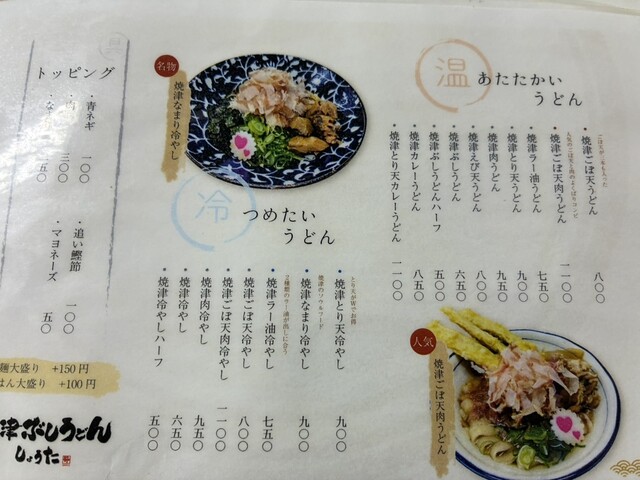 温
あたたかい
うどん
・焼津ごぼ天うどん 八〇〇
人気のごぼ天と肉のよくばりコンビ
・焼津ごぼ天肉うどん 一一〇〇
・焼津ラー油うどん 七五〇
・焼津とり天うどん 九〇〇
・焼津肉うどん 九五〇
・焼津えび天うどん 八〇〇
・焼津ぶしうどん 六五〇
・焼津ぶしうどんハーフ 五〇〇
・焼津カレーうどん 八五〇
・焼津とり天カレーうどん 一一〇〇
人気
焼津ごぼ天肉うどん
名物
焼津なまり冷やし
冷
つめたい
うどん
とり天が皿でお得
・焼津とり天冷やし 九〇〇
焼津のソウルフード
・焼津なまり冷やし 九〇〇
2種類のラー油が出しに合う
・焼津ラー油冷やし 七五〇
・焼津ごぼ天冷やし 八〇〇
・焼津ごぼ天肉冷やし 一一〇〇
・焼津肉冷やし 九五〇
・焼津冷やし 六五〇
・焼津冷やしハーフ 五〇〇
トッピング
・青ネギ 一〇〇
・肉 三〇〇
・な 一五〇
・追い鰹節 一〇〇
・マヨネーズ 五〇
麺大盛り +150円
はん大盛り +100円
津ぶしうどん
しょうた